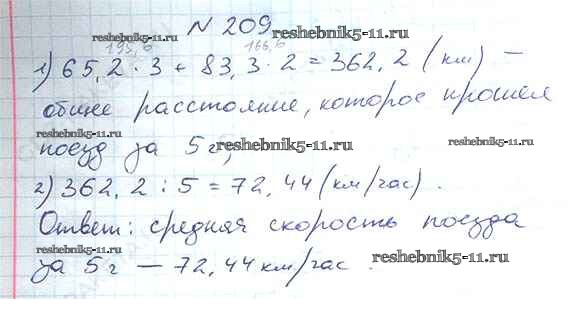 N 209
reshebnik5-11.ru
195,6 166,6
1) 65,2 · 3 + 83,3 · 2 = 362,2 (км) –
reshebnik5-11.ru
общее расстояние, которое прошёл
reshebnik5-11.ru reshebnik5-11.ru
поезд за 5 ч;
2) 362,2 : 5 = 72,44 (км/час).
Ответ: средняя скорость поезда
reshebnik5-11.ru reshebnik5-11.ru
за 5 ч – 72,44 км/час.
reshebnik5-11.ru